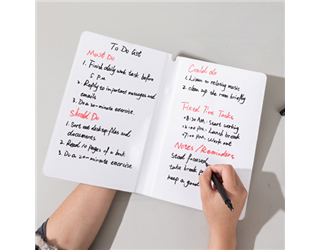 To Do list
Must Do
1. Finish daily work task before
5 PM
2. Reply to important messages and
emails
3. Do a 20-minute exercise.
Should Do
1. Sort out desktop files and
documents
2. Read 10 pages of a book
3. Do a 20-minute exercise.
Could do
1. Listen to relaxing music
2. clean up the room briefly
Fixed Time Tasks
08:30 AM: start working
12:00 PM: Lunch break
Work out
Notes/Reminders
stay focused
take break
keep a